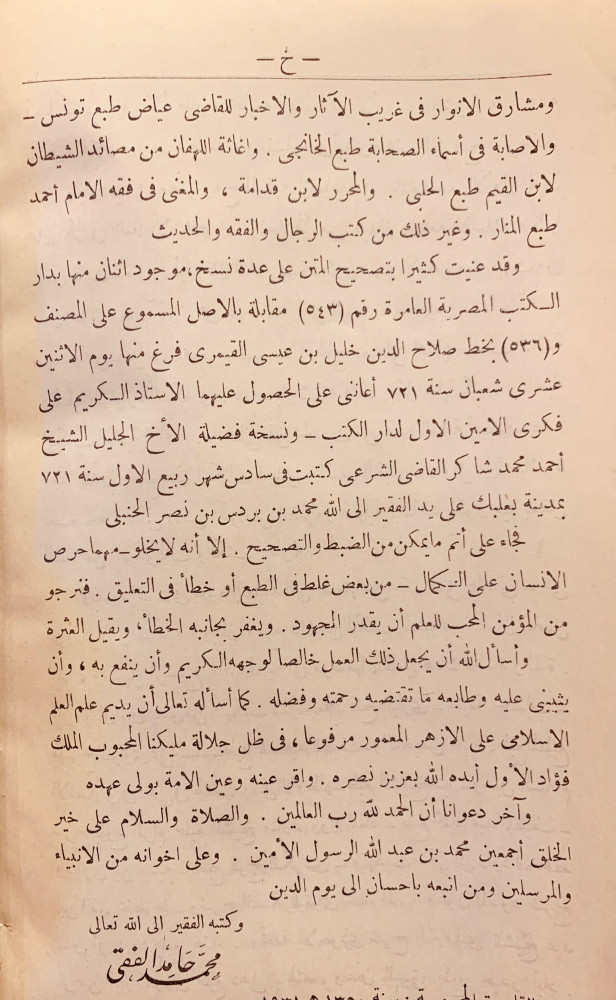 — خ —
ومشارق الانوار فى غريب الآثار والاخبار للقاضى عياض طبع تونس ــ
والاصابة فى أسماء الصحابة طبع الخانجى . واغاثة اللهفان من مصائد الشيطان
لابن القيم طبع الحلبى . والمحرر لابن قدامة ، والمغنى فى فقه الامام أحمد
طبع المنار . وغير ذلك من كتب الرجال والفقه والحديث
وقد عنيت كثيرا بتصحيح المتن على عدة نسخ، موجود اثنان منها بدار
الكتب المصرية العامرة رقم (٥٤٣) مقابلة بالاصل المسموع على المصنف
و(٥٣٦) بخط صلاح الدين خليل بن عيسى القيمرى فرغ منها يوم الاثنين
عشرى شعبان سنة ٧٢١ أعاننى على الحصول عليهما الاستاذ الكريم على
فكرى الامين الاول لدار الكتب ــ ونسخة فضيلة الأخ الجليل الشيخ
أحمد محمد شاكر القاضى الشرعى كتبت فى سادس شهر ربيع الاول سنة ٧٢١
بمدينة بعلبك على يد الفقير الى الله محمد بن بردس بن نصر الحنبلى
فجاء على أتم مايمكن من الضبط والتصحيح . إلا أنه لايخلو ــ مهما حرص
الانسان على الكمال ــ من بعض غلط فى الطبع أو خطأ فى التعليق . فنرجو
من المؤمن المحب للعلم أن يقدر المجهود . ويغفر بجانبه الخطأ، ويقيل العثرة
وأسأل الله أن يجعل ذلك العمل خالصا لوجهه الكريم وأن ينفع به ، وأن
يثيبنى عليه وطابعه ما تقتضيه رحمته وفضله . كما أسأله تعالى أن يديم علم العلم
الاسلامى على الازهر المعمور مرفوعا ، فى ظل جلالة مليكنا المحبوب الملك
فؤاد الأول أيده الله بعزيز نصره . واقر عينه وعين الامة بولى عهده
وآخر دعوانا أن الحمد لله رب العالمين . والصلاة والسلام على خير
الخلق أجمعين محمد بن عبد الله الرسول الأمين . وعلى اخوانه من الانبياء
والمرسلين ومن اتبعه باحسان الى يوم الدين
وكتبه الفقير الى الله تعالى
محمد حامد الفقى